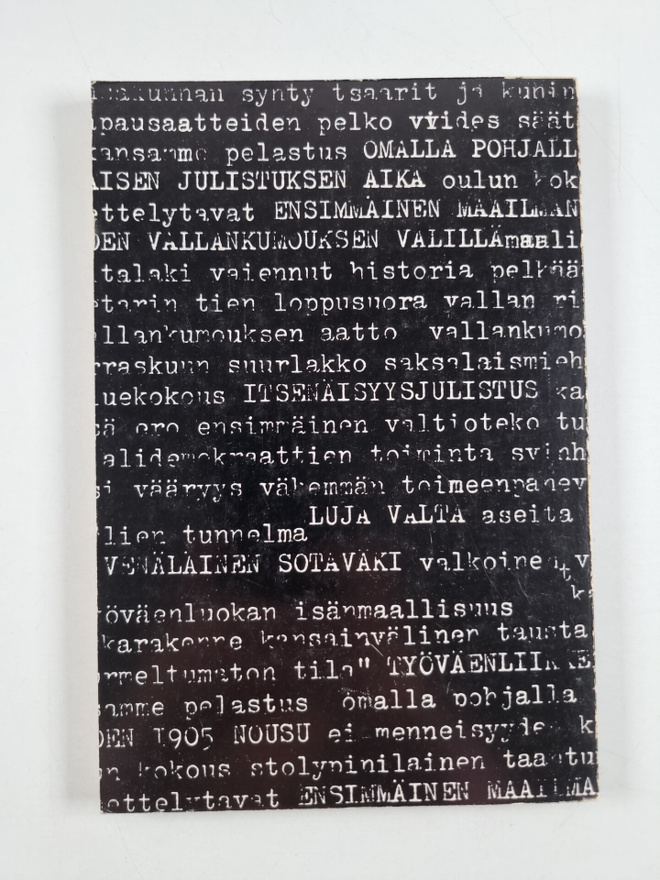 synty tsaarit ja kuhin
pausaatteiden pelko viides säät
kansamme pelastus OMALLA POHJALL
AISEN JULISTUKSEN AIKA oulun kok
ettelytavat ENSIMMÄINEN MAAILMAN
DEN VALLANKUMOUKSEN VALILLÄmaali
talaki vaiennut historia pelkää
etarin tien loppusuora vallan ri
llankumouksen aatto vallankumo
rraskuun suurlakko saksalaismieh
uekokous ITSENÄISYYSJULISTUS ka
sä ero ensimmäinen valtioteko tu
alidemokraattien toiminta svinh
si vääryys vähemmän toimeenpanev
LUJA VALTA aseita
lien tunnelma
VENÄLAINEN SOTAVÄKI valkoinen v
öväenluokan isänmaallisuus
karakenne kansainvälinen tausta
rmeltumaton tila" TYÖVÄENLIIKKE
samme pelastus omalla pohjalla
DEN 1905 NOUSU ei menneisyyden k
n kokous stolypinilainen taantu
ettelytavat ENSIMMÄINEN MAAILMA